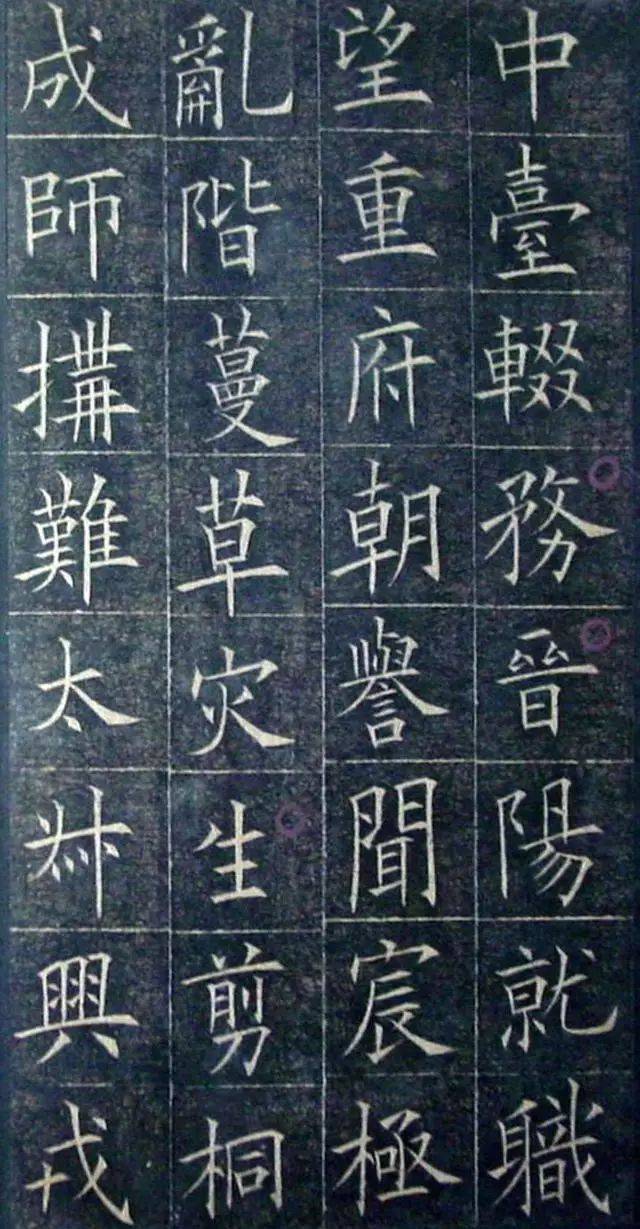 中臺輟務晉陽就軄
望重府朝譽聞宸極
亂階蔓草灾生剪桐
成師搆難太叔興戎